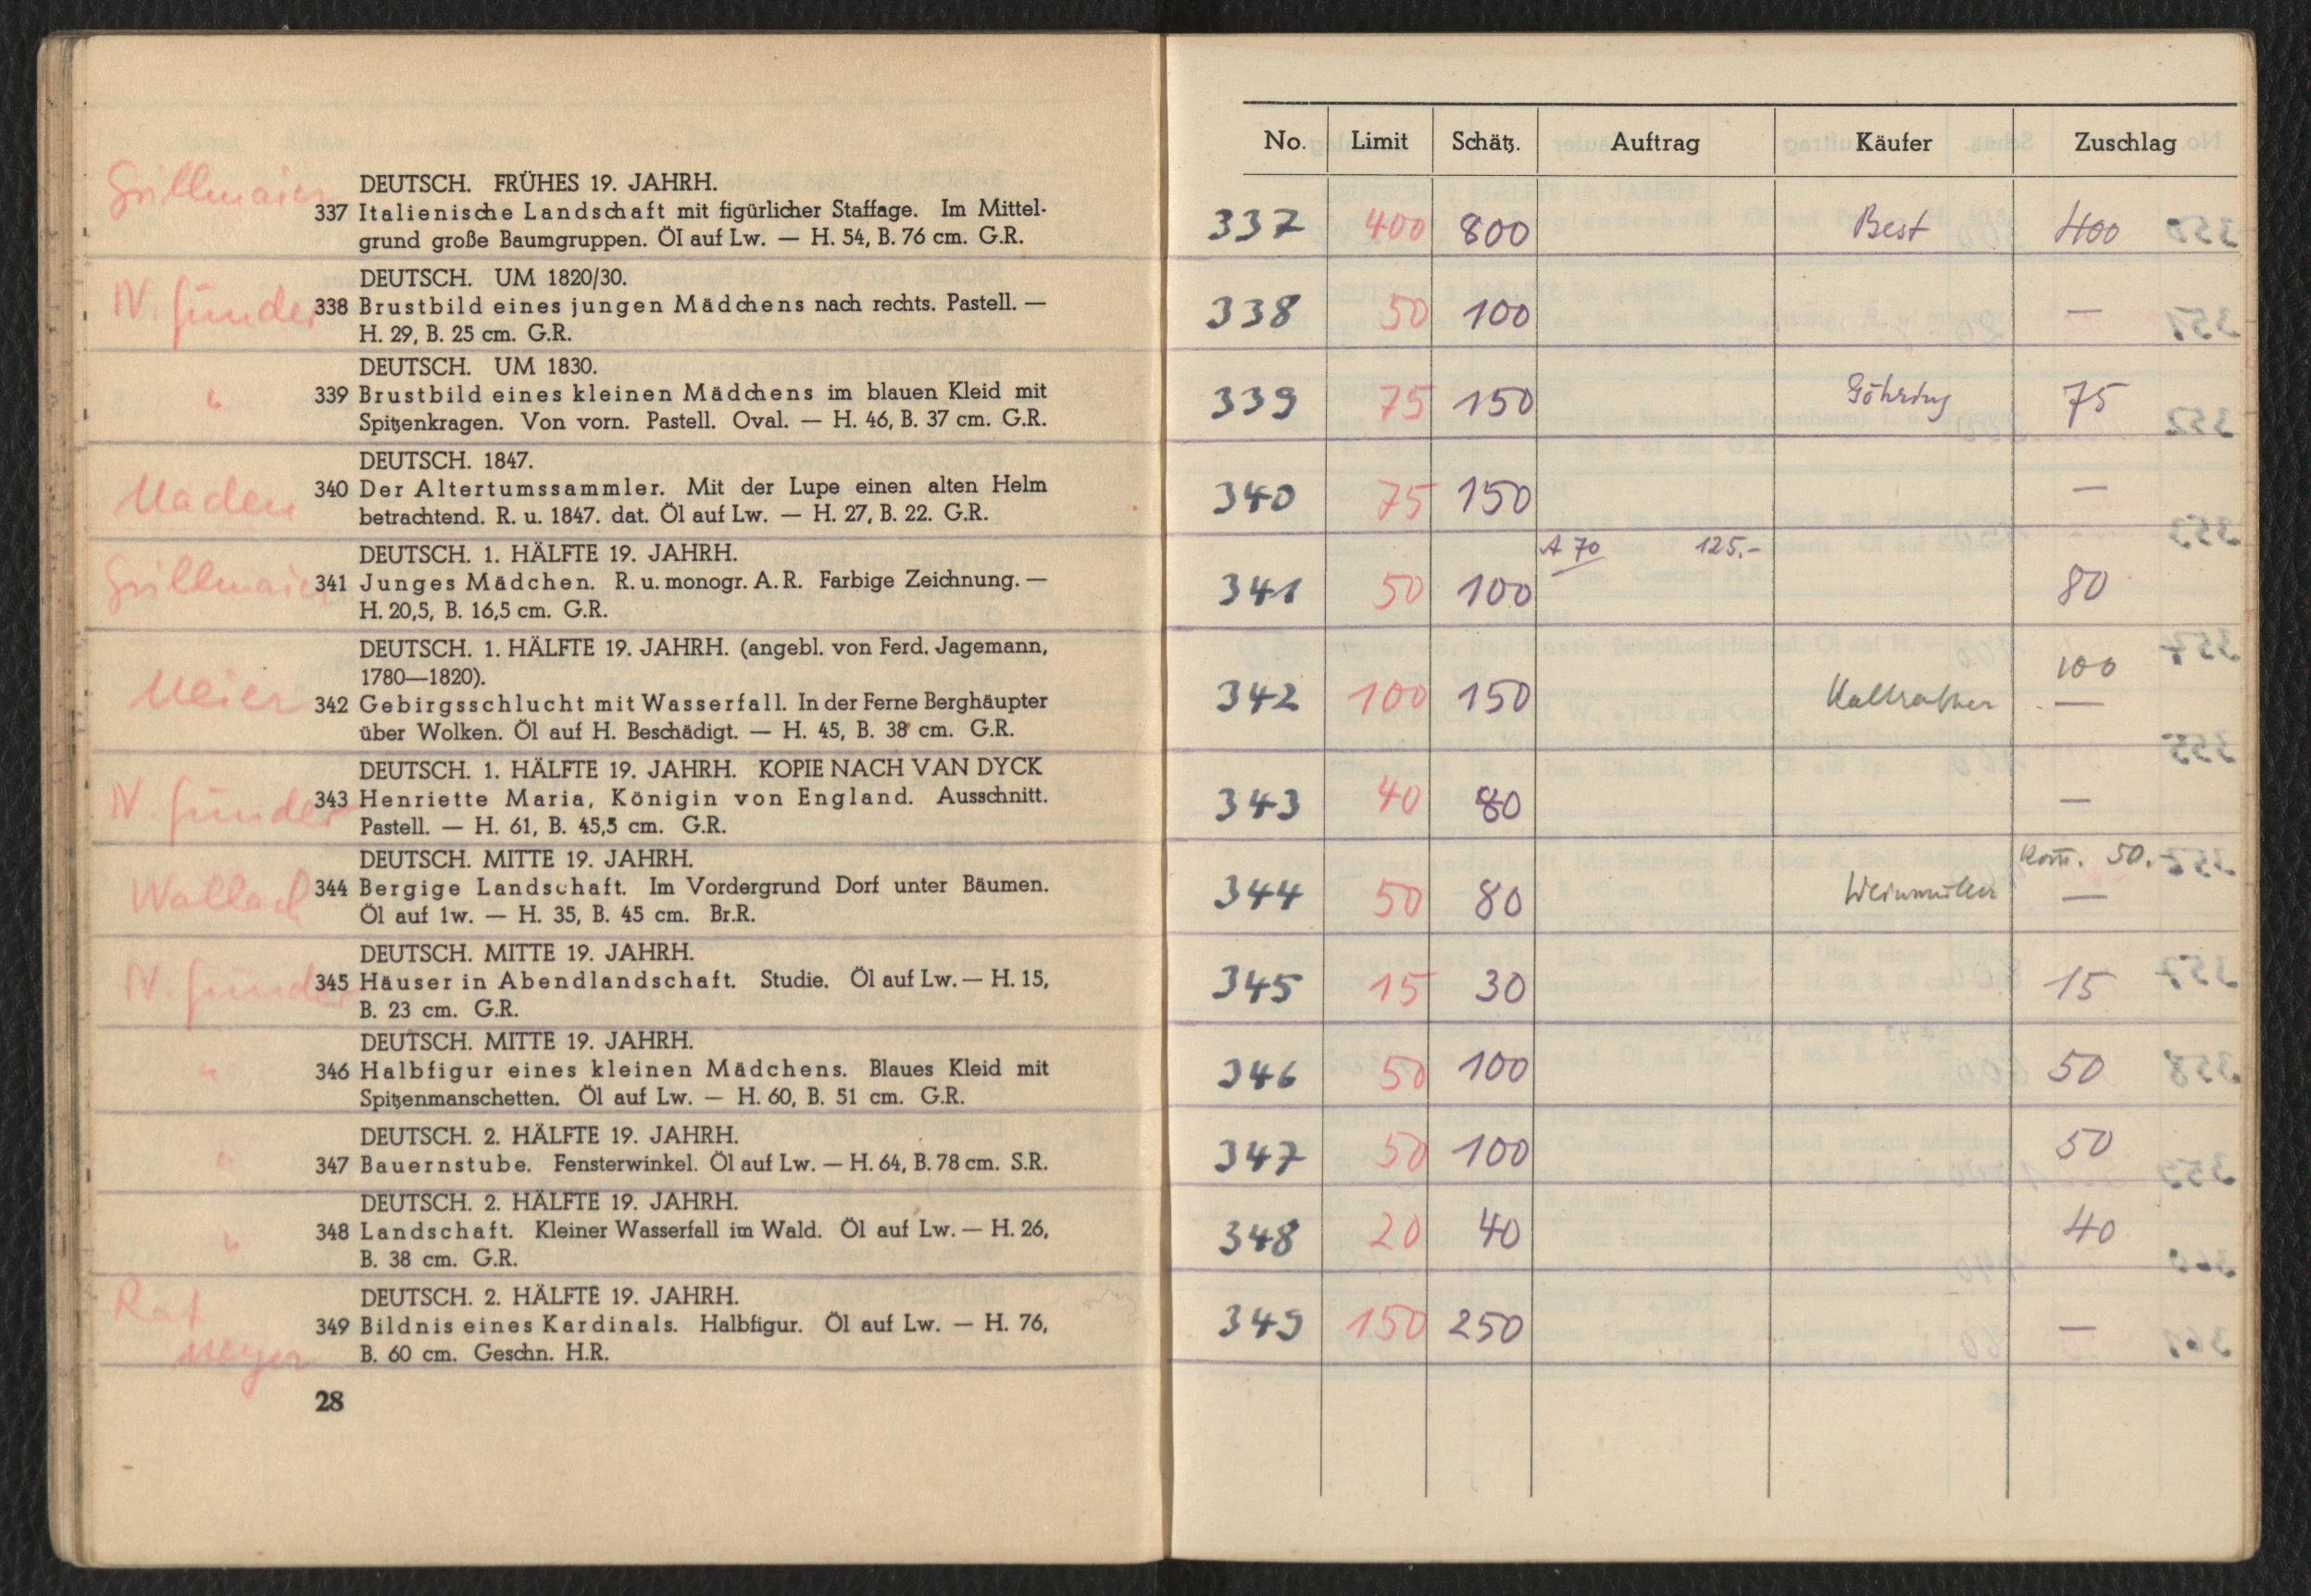 Grillmaier
DEUTSCH. FRÜHES 19. JAHRH.
337 Italienische Landschaft mit figürlicher Staffage. Im Mittel-
grund große Baumgruppen. Öl auf Lw. — H. 54, B. 76 cm. G.R.
DEUTSCH. UM 1820/30.
N. Günder
338 Brustbild eines jungen Mädchens nach rechts. Pastell. —
H. 29, B. 25 cm. G.R.
DEUTSCH. UM 1830.
"
339 Brustbild eines kleinen Mädchens im blauen Kleid mit
Spitzenkragen. Von vorn. Pastell. Oval. — H. 46, B. 37 cm. G.R.
DEUTSCH. 1847.
Maden
340 Der Altertumssammler. Mit der Lupe einen alten Helm
betrachtend. R. u. 1847. dat. Öl auf Lw. — H. 27, B. 22. G.R.
DEUTSCH. 1. HÄLFTE 19. JAHRH.
Grillmaier
341 Junges Mädchen. R. u. monogr. A. R. Farbige Zeichnung. —
H. 20,5, B. 16,5 cm. G.R.
DEUTSCH. 1. HÄLFTE 19. JAHRH. (angebl. von Ferd. Jagemann,
1780—1820).
Meier
342 Gebirgsschlucht mit Wasserfall. In der Ferne Berghäupter
über Wolken. Öl auf H. Beschädigt. — H. 45, B. 38 cm. G.R.
DEUTSCH. 1. HÄLFTE 19. JAHRH. KOPIE NACH VAN DYCK
N. Günder
343 Henriette Maria, Königin von England. Ausschnitt.
Pastell. — H. 61, B. 45,5 cm. G.R.
DEUTSCH. MITTE 19. JAHRH.
Wallach
344 Bergige Landschaft. Im Vordergrund Dorf unter Bäumen.
Öl auf 1w. — H. 35, B. 45 cm. Br.R.
DEUTSCH. MITTE 19. JAHRH.
N. Günder
345 Häuser in Abendlandschaft. Studie. Öl auf Lw. — H. 15,
B. 23 cm. G.R.
DEUTSCH. MITTE 19. JAHRH.
"
346 Halbfigur eines kleinen Mädchens. Blaues Kleid mit
Spitzenmanschetten. Öl auf Lw. — H. 60, B. 51 cm. G.R.
DEUTSCH. 2. HÄLFTE 19. JAHRH.
"
347 Bauernstube. Fensterwinkel. Öl auf Lw. — H. 64, B. 78 cm. S.R.
DEUTSCH. 2. HÄLFTE 19. JAHRH.
"
348 Landschaft. Kleiner Wasserfall im Wald. Öl auf Lw. — H. 26,
B. 38 cm. G.R.
Rat
Meyer
DEUTSCH. 2. HÄLFTE 19. JAHRH.
349 Bildnis eines Kardinals. Halbfigur. Öl auf Lw. — H. 76,
B. 60 cm. Geschn. H.R.
28
No. Limit Schätz. Auftrag Käufer Zuschlag
337 400 800 Best 400
338 50 100 —
339 75 150 Göhring 75
340 75 150 —
A 70 125.-
341 50 100 80
100
342 100 150 —
343 40 80 —
Kom. 50.-
344 50 80 Weinmüller —
345 15 30 15
346 50 100 50
347 50 100 50
348 20 40 40
349 150 250 —